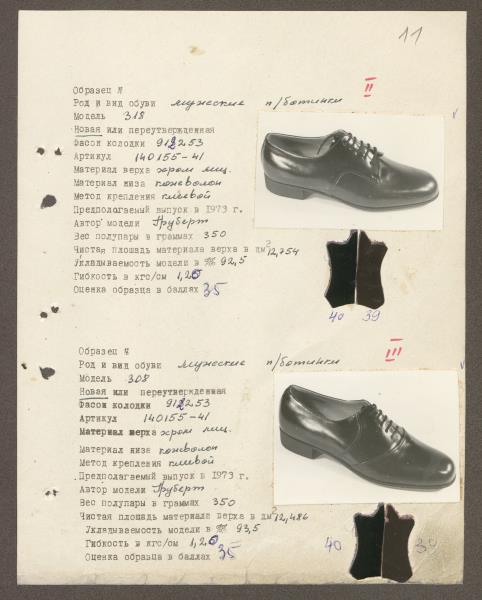 11
II
Образец №
Род и вид обуви мужские п/ботинки
Модель 318
Новая или переутвержденная
Фасон колодки 912253
Артикул 140155-41
Материал верха хром лиц.
Материал низа кожволон
Метод крепления клеевой
Предполагаемый выпуск в 1973 г.
Автор модели Груберт
Вес полупары в граммах 350
Чистая площадь материала верха в дм² 12,754
Укладываемость модели в % 92,5
Гибкость в кгс/см 1,25
Оценка образца в баллах 35
40 39
III
Образец №
Род и вид обуви мужские п/ботинки
Модель 308
Новая или переутвержденная
Фасон колодки 912253
Артикул 140155-41
Материал верха хром лиц.
Материал низа кожволон
Метод крепления клеевой
Предполагаемый выпуск в 1973 г.
Автор модели Груберт
Вес полупары в граммах 350
Чистая площадь материала верха в дм² 12,486
Укладываемость модели в % 93,5
Гибкость в кгс/см 1,20
Оценка образца в баллах 35
40 39